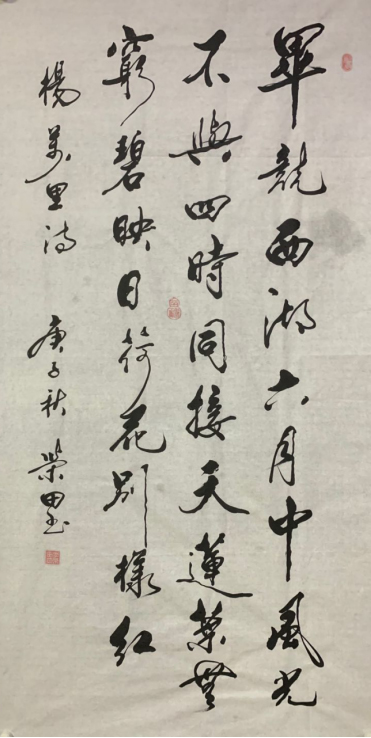 畢競西湖六月中風光
不與四時同接天蓮葉無
窮碧映日荷花別樣紅
楊萬里詩 庚子秋 榮田書